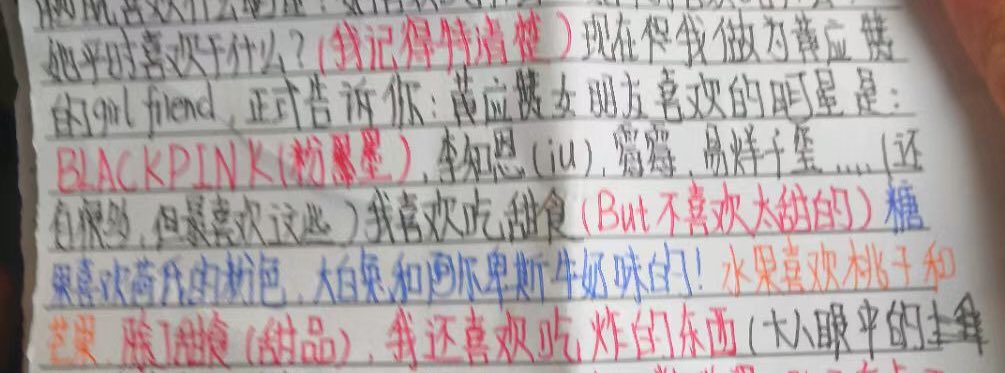 喜欢什么明星？
她平时喜欢干什么？(我记得特清楚) 现在但我做为黄应赞
的girl friend, 正式告诉你：黄应赞女朋友喜欢的明星是：
BLACKPINK(粉墨墨), 李知恩(iu), 霉霉, 易烊千玺....(还
有很多,但最喜欢这些)我喜欢吃甜食(But不喜欢太甜的)糖
果喜欢荷氏的粉色,大白兔和阿尔卑斯牛奶味的! 水果喜欢桃子和
芒果 除了甜食(甜品),我还喜欢吃炸的东西(大人眼中的